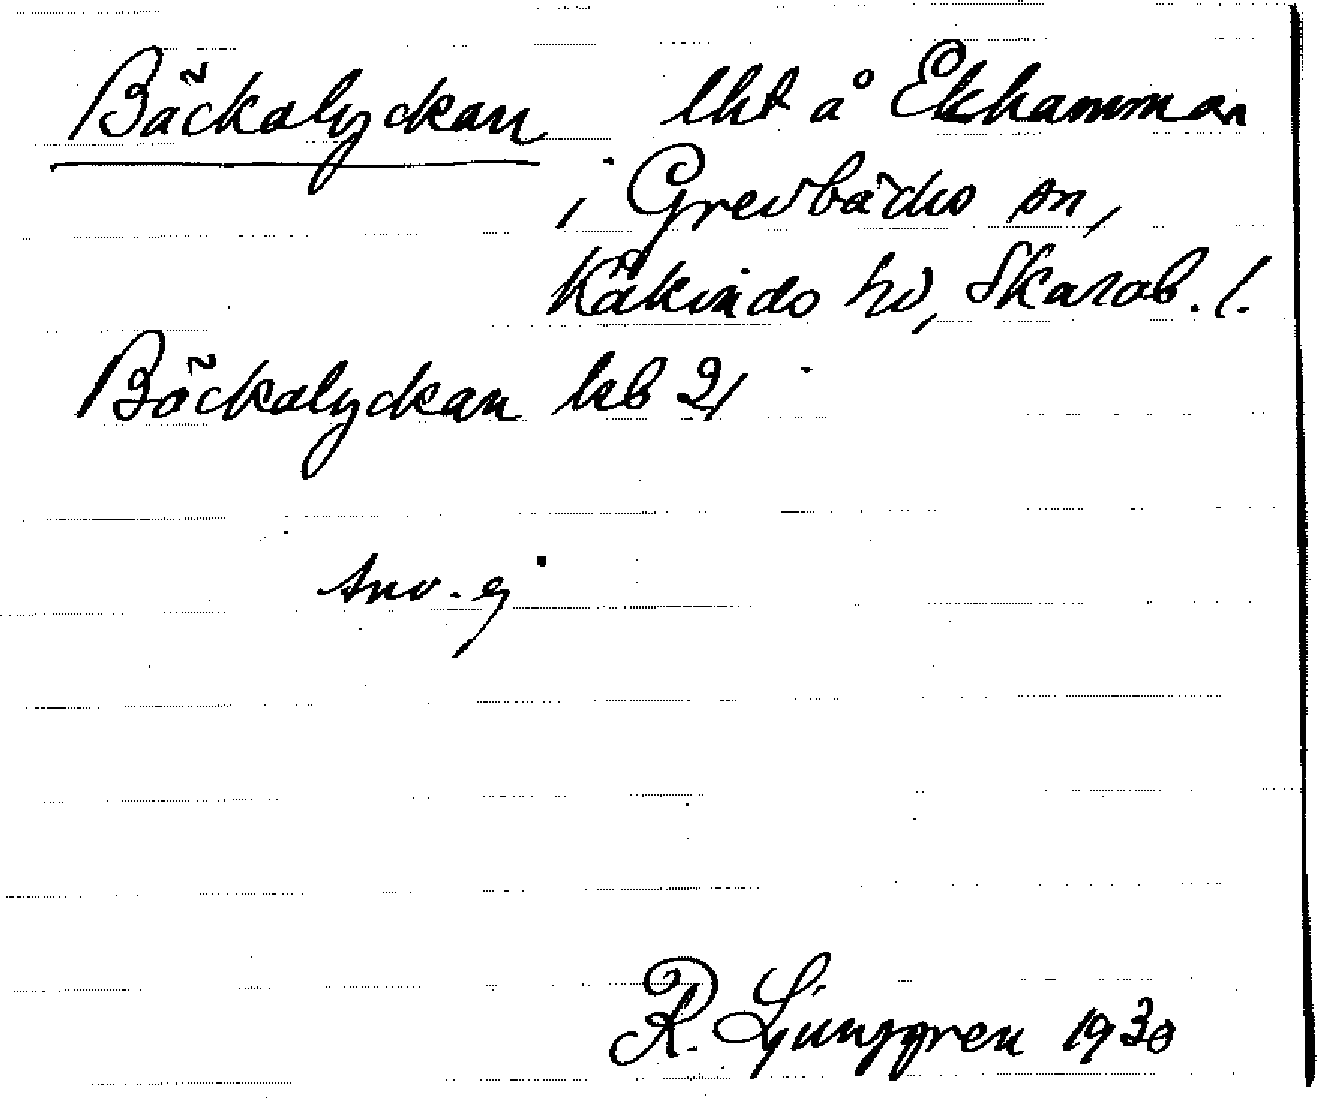 Bäckalyckan lht å Ekhamman
i Grevbäcks sn,
Kåkinds hd, Skarab. l.
Bäckalyckan
Anv. ej
R. Ljunggren 1930